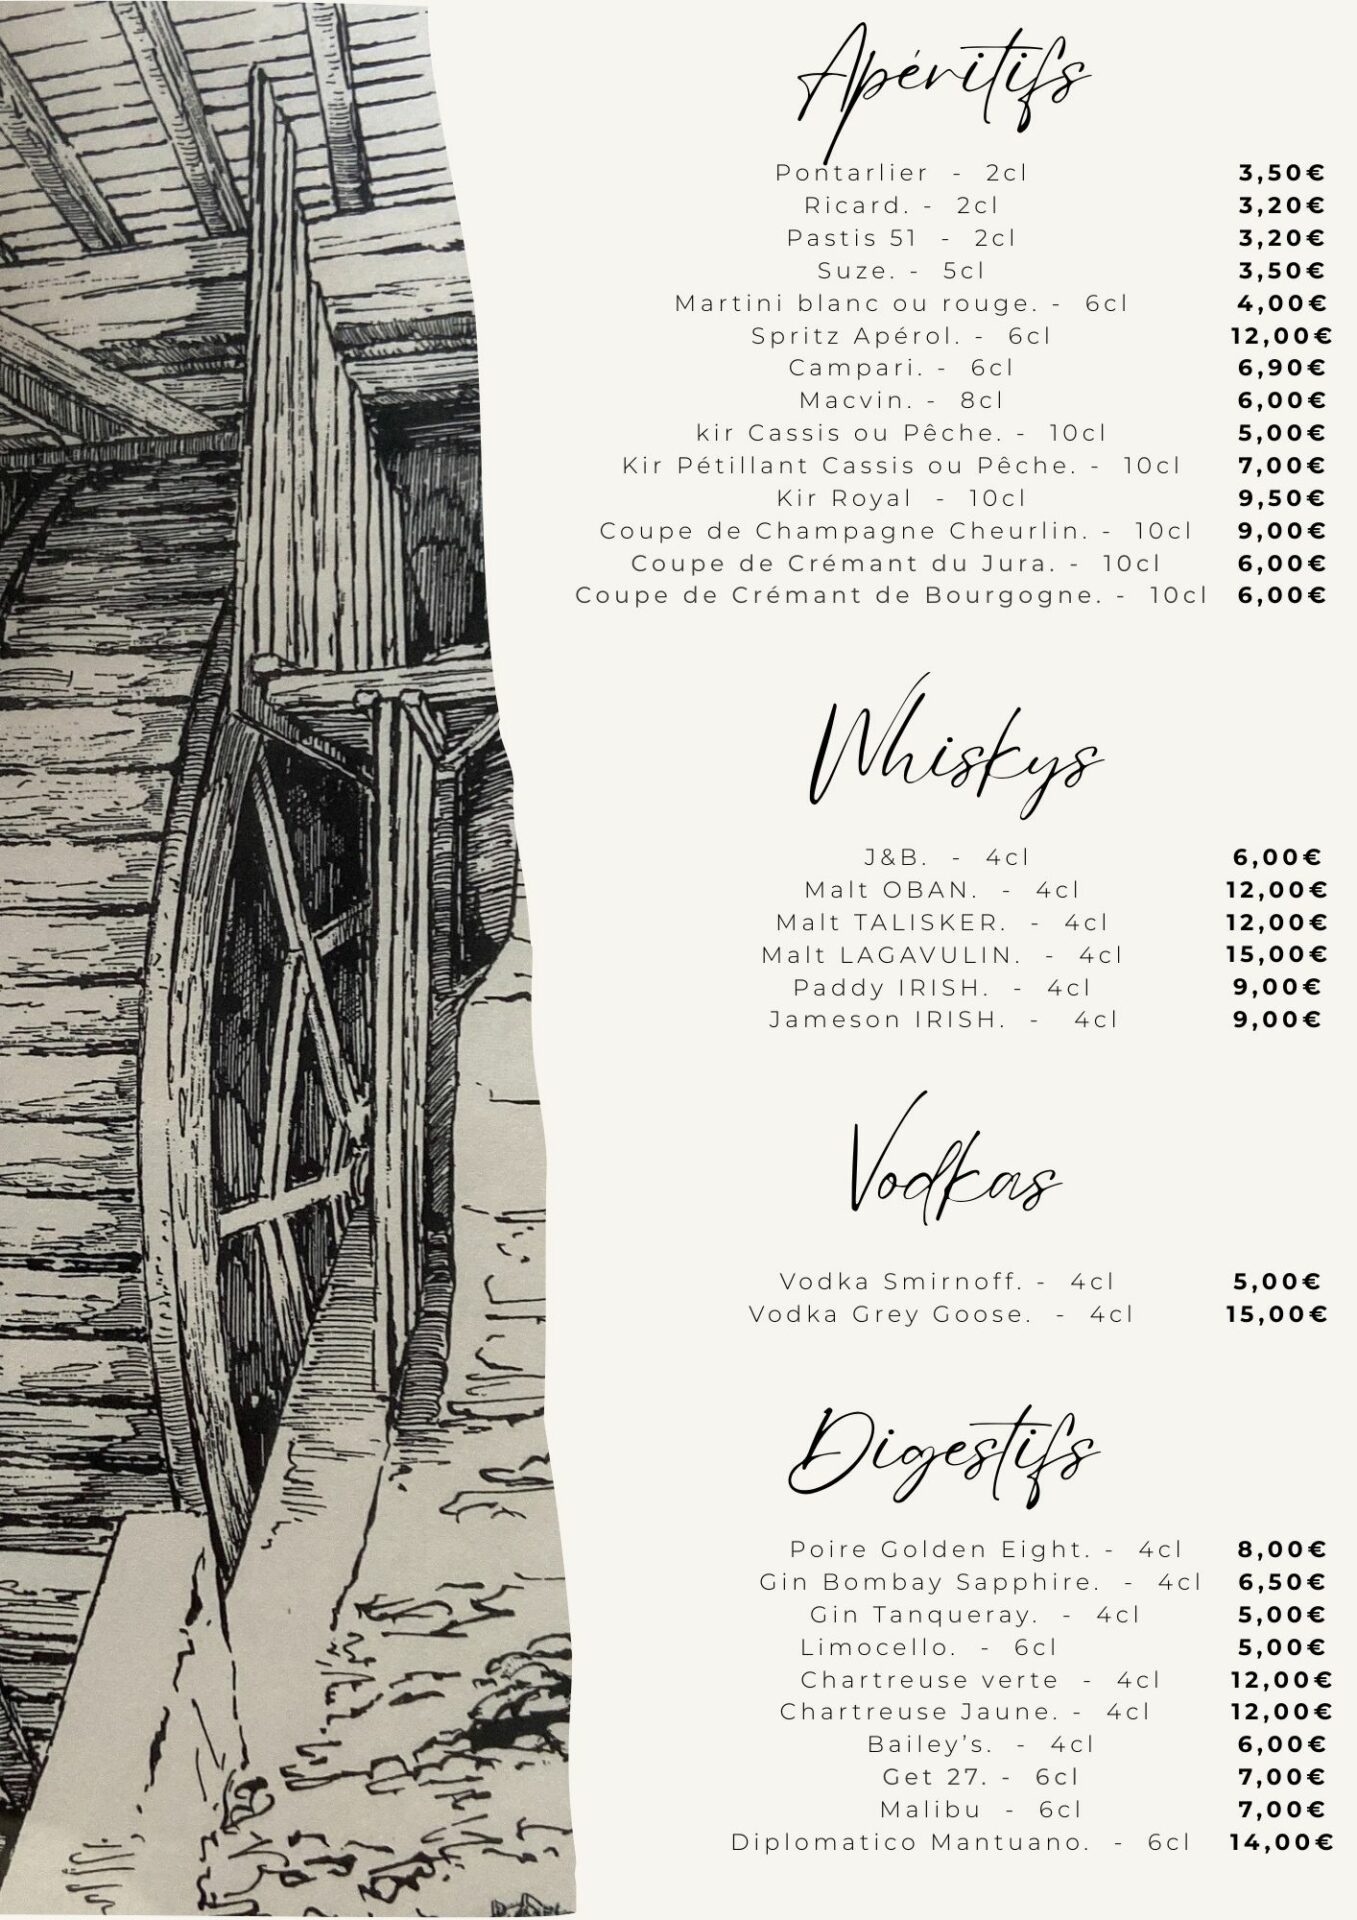 Apéritifs
Pontarlier - 2cl 3,50€
Ricard. - 2cl 3,20€
Pastis 51 - 2cl 3,20€
Suze. - 5cl 3,50€
Martini blanc ou rouge. - 6cl 4,00€
Spritz Apérol. - 6cl 12,00€
Campari. - 6cl 6,90€
Macvin. - 8cl 6,00€
kir Cassis ou Pêche. - 10cl 5,00€
Kir Pétillant Cassis ou Pêche. - 10cl 7,00€
Kir Royal - 10cl 9,50€
Coupe de Champagne Cheurlin. - 10cl 9,00€
Coupe de Crémant du Jura. - 10cl 6,00€
Coupe de Crémant de Bourgogne. - 10cl 6,00€
Whiskys
J&B. - 4cl 6,00€
Malt OBAN. - 4cl 12,00€
Malt TALISKER. - 4cl 12,00€
Malt LAGAVULIN. - 4cl 15,00€
Paddy IRISH. - 4cl 9,00€
Jameson IRISH. - 4cl 9,00€
Vodkas
Vodka Smirnoff. - 4cl 5,00€
Vodka Grey Goose. - 4cl 15,00€
Digestifs
Poire Golden Eight. - 4cl 8,00€
Gin Bombay Sapphire. - 4cl 6,50€
Gin Tanqueray. - 4cl 5,00€
Limocello. - 6cl 5,00€
Chartreuse verte - 4cl 12,00€
Chartreuse Jaune. - 4cl 12,00€
Bailey's. - 4cl 6,00€
Get 27. - 6cl 7,00€
Malibu - 6cl 7,00€
Diplomatico Mantuano. - 6cl 14,00€